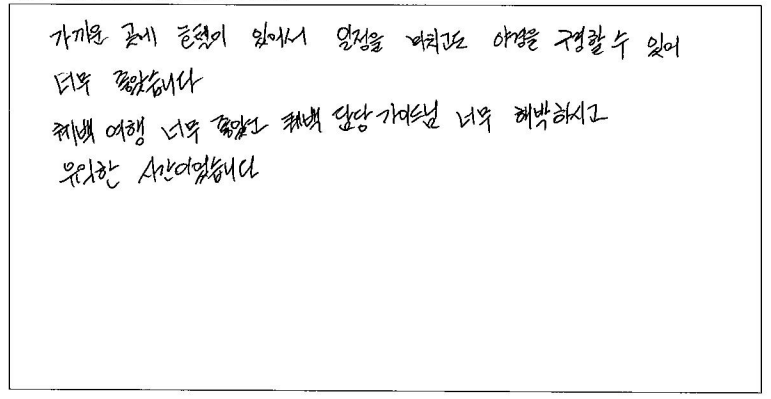 가까운 곳에 호텔이 있어서 일정을 마치고도 야경을 구경할 수 있어
너무 좋았습니다
퀘백 여행 너무 좋았고 퀘백 담당 가이드님 너무 해박하시고
유익한 시간이었습니다